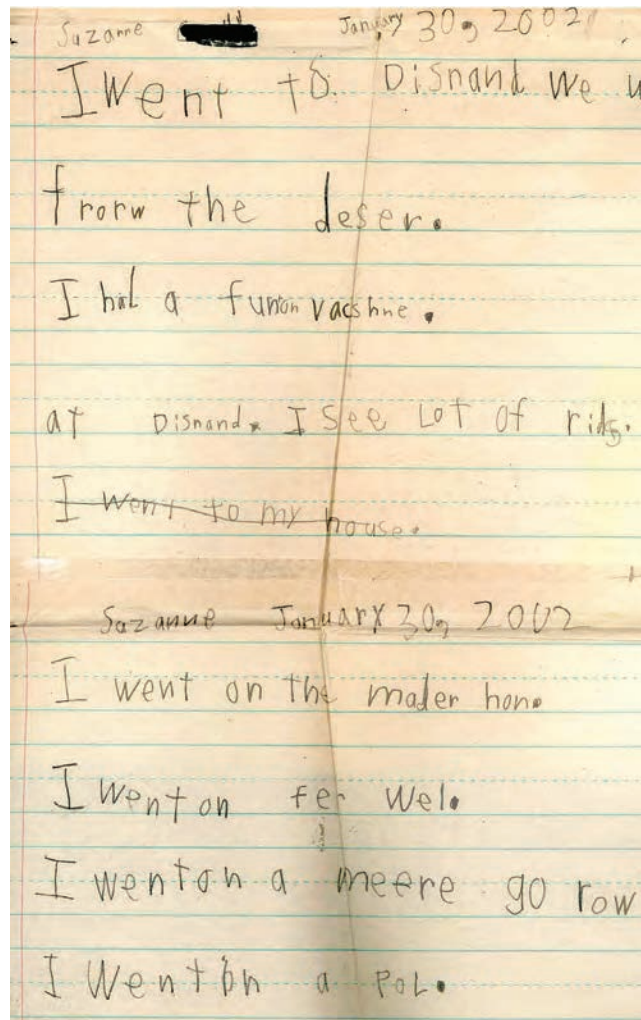 Suzanne January 30, 2002
I Went to Disnand We
frorw the deser.
I had a funon vacshne.
at Disnand. I see Lot of rids.
I went to my house.
Suzanne January 30, 2002
I went on the mader hon.
I went on fer wel.
I went on a meere go row
I went on a poL.